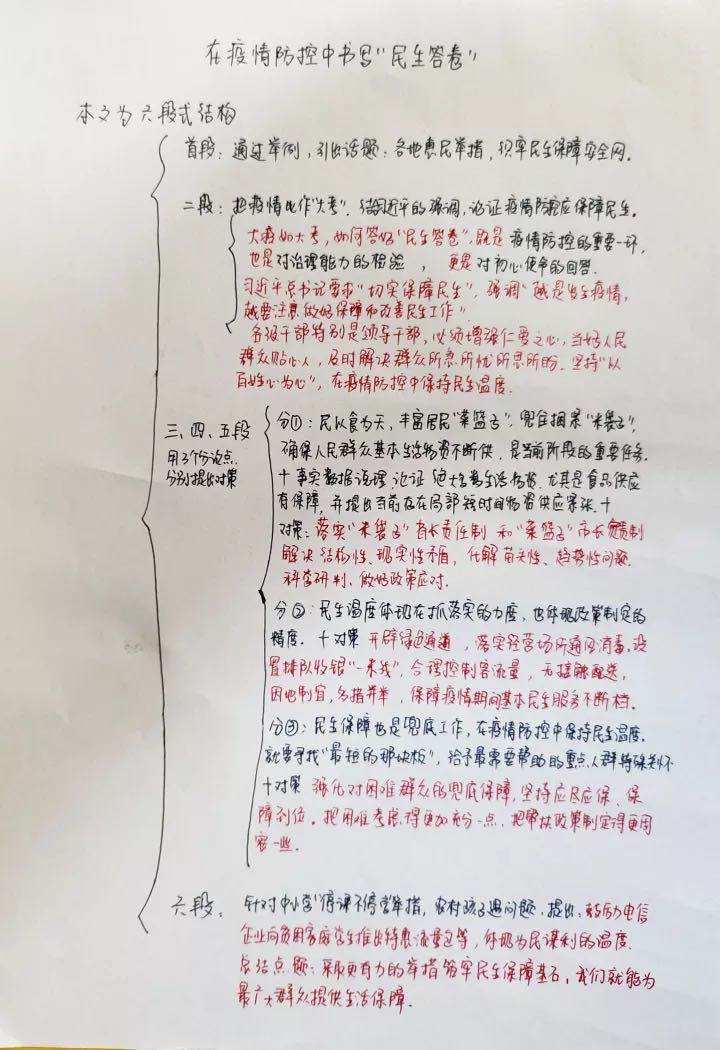 在疫情防控中书写“民生答卷”
本文为六段式结构
首段：通过举例，引出话题：各地惠民举措，织牢民生保障安全网。
二段：把疫情比作“大考”，结习近平的强调，论证疫情防控应保障民生。
大疫如大考，如何答好“民生答卷”，既是疫情防控的重要一环，
也是对治理能力的检验，更是对初心使命的回答。
习近平总书记要求“切实保障民生”，强调“越是发生疫情，
越要注意做好保障和改善民生工作”
各级干部特别是领导干部，必须增强仁爱之心，当好人民
群众贴心人，及时解决群众所急所忧所思所盼。坚持“以
百姓心为心”，在疫情防控中保持民生温度。
三、四、五段
用3个分论点
分别提出对策
分①：民以食为天，丰富居民“菜篮子”，兜住捆紧“米袋子”，
确保人民群众基本生活物资不断供，是当前阶段的重要任务。
十事实数据说理，论证绝大多数生活物资，尤其是食品供应
有保障，并提出当前存在局部短时间物资供应紧张。十
对策：落实“米袋子”省长责任制和“菜篮子”市长负责制
解决结构性、现实性矛盾，化解苗头性、趋势性问题
科学研判、做好政策应对．
分②：民生温度体现在抓落实的力度，也体现政策制定的
精度．十对策 开辟绿色通道，落实经营场所通风消毒，设
置排队收银“一米线”，合理控制客流量，无接触配送，
因地制宜，多措并举，保障疫情期间基本民生服务不断档．
分③：民生保障也是兜底工作，在疫情防控中保持民生温度，
就要寻找“最短的那块板”，给予最需要帮助的重点人群特殊关怀
十对策 强化对困难群众的兜底保障，坚持应尽应保、保
障到位。把困难考虑得更加充分一点、把帮扶政策制定得更周
密一些．
六段：针对中小学“停课不停学”举措，农村孩子遇问题，提出：鼓励电信
企业向贫困家庭学生推出特惠流量包等，体现为民谋利的温度．
总结点题：采取更有力的举措筑牢民生保障基石，我们就能为
最广大群众提供生活保障．